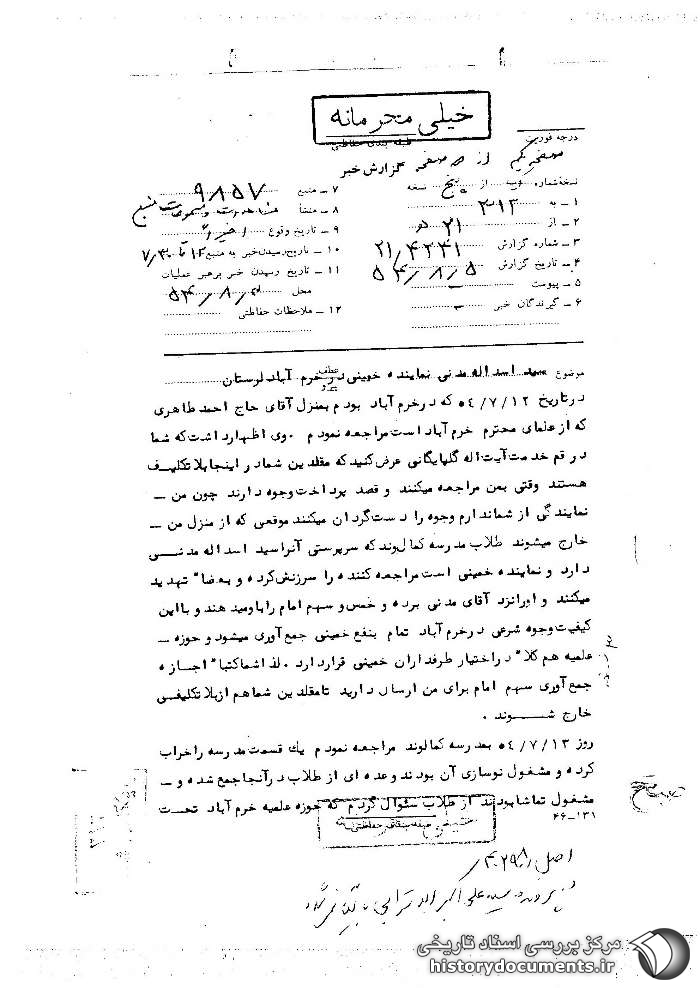 خیلی محرمانه
طبقه بندی حفاظتی
درجه فوریت
گزارش خبر
نسخه شماره از پنج نسخه
۱ – به ۳۱۲
۲ – از ۲۱ هـ
۳ – شماره گزارش ۲۱/۴۲۴۱
۴ – تاریخ گزارش ۵۴/۸/۵
۵ – پیوست
۶ – گیرندگان خبر
۷ – منبع ۹۸۵۷
۸ – منشأ
۹ – تاریخ وقوع اخیراً
۱۰ – تاریخ رسیدن خبر به منبع
۱۱ – تاریخ رسیدن خبر برهبر عملیات
محل ۵۴/۸/۳
۱۲ – ملاحظات حفاظتی
موضوع سید اسداله مدنی نماینده خمینی در خرم آباد لرستان
عطف
درتاریخ ۵٤/۷/۱۲ که درخرم آباد بودم بمنزل آقای حاج احمد طاهری
که ازعلمای محترم خرم آباد است مراجعه نمودم . وی اظهارداشت که شما
درقم خدمت آیت اله گلپایگانی عرض کنید که مقلدین شما در اینجا بلاتکلیف
هستند وقتی بمن مراجعه میکنند و قصد پرداخت وجوه دارند چون من –
نمایندگی از شما ندارم وجوه را دست گردان میکنند موقعی که از منزل من –
خارج میشوند طلاب مدرسه کمالوند که سرپرستی آنرا سید اسداله مدنی
دارد و نماینده خمینی است مراجعه کننده را سرزنش کرده و بعضا" تهدید
میکنند و اورا نزد آقای مدنی برده و خمس و سهم امام را باو میدهند و با این
کیفیت وجوه شرعی درخرم آباد تمام بنفع خمینی جمع آوری میشود و حوزه –
علمیه هم کلا" دراختیار طرفداران خمینی قراردارد . لذا شما کتبا" اجازه
جمع آوری سهم امام برای من ارسال دارید تا مقلدین شما هم از بلاتکلیفی
خارج شوند .
روز ۵٤/۷/۱۳ بمدرسه کمالوند مراجعه نمودم یك قسمت مدرسه را خراب
کرده و مشغول نوسازی آن بودند و عده ای از طلاب درآنجا جمع شده و –
مشغول تماشا بودند از طلاب سئوال کردم که حوزه علمیه خرم آباد تحت
۴۶–۱۳۱
مرکز بررسی اسناد تاریخی
historydocuments.ir